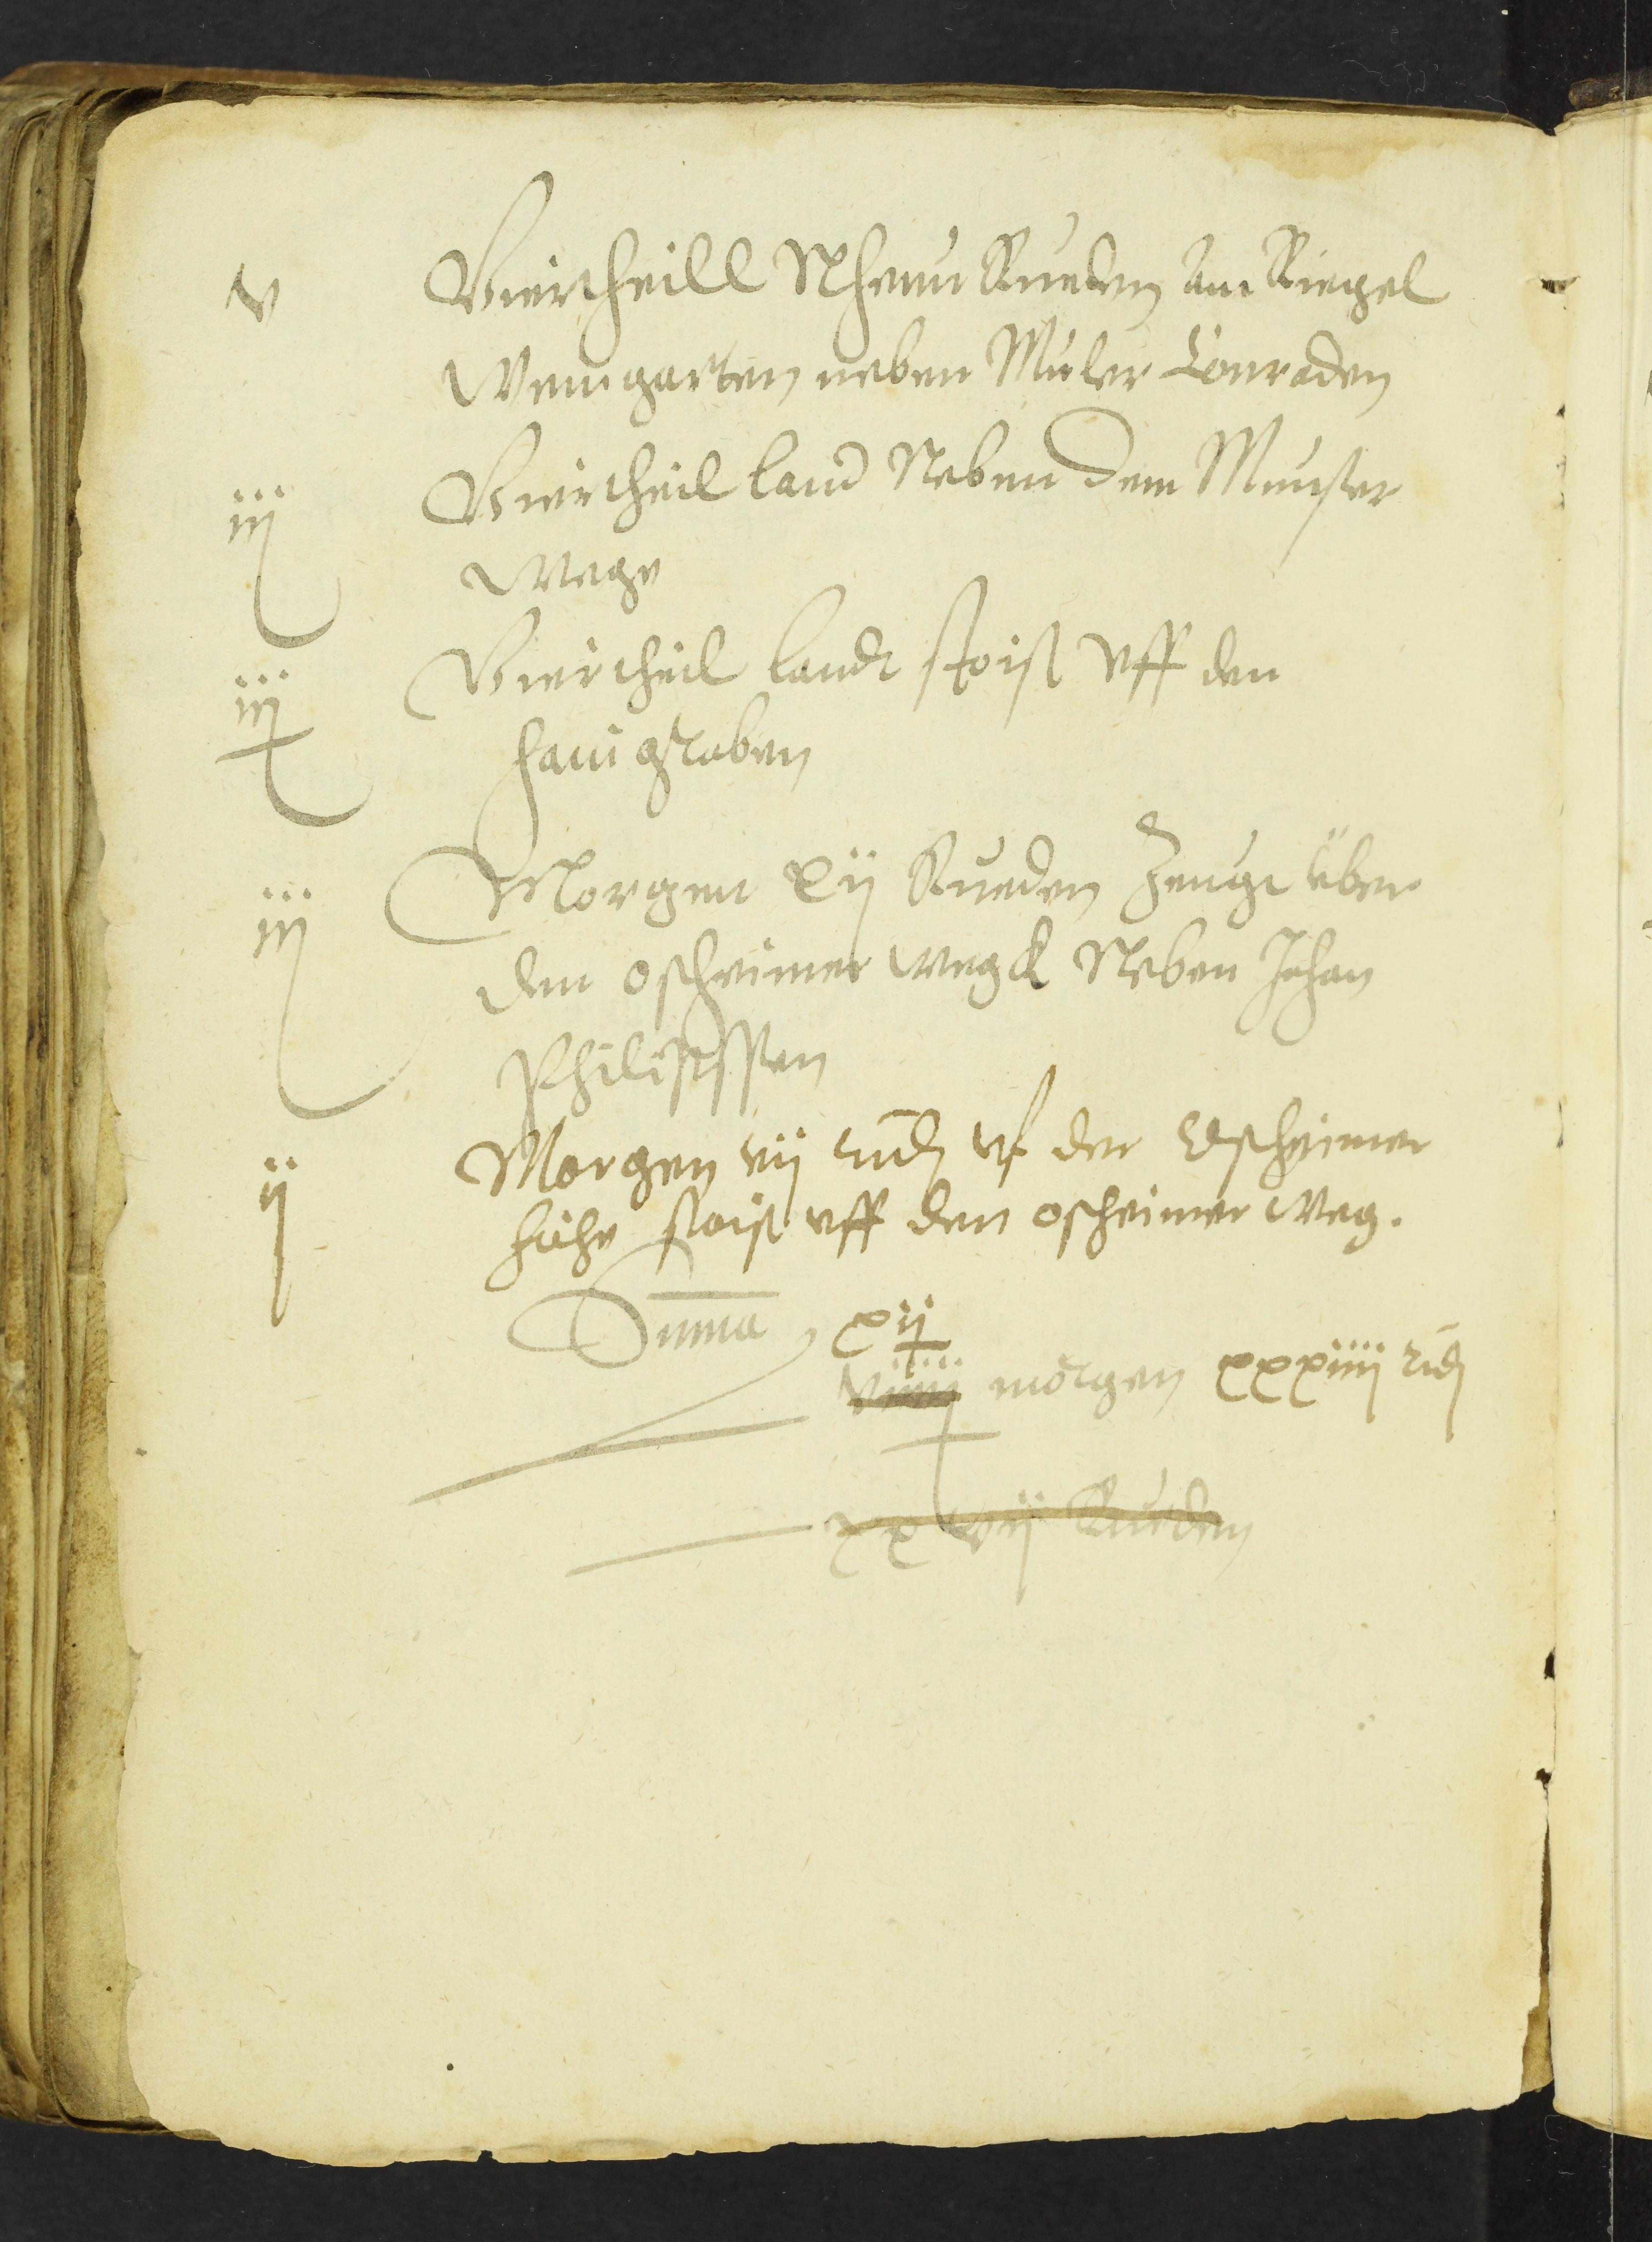 v Viertheill Nheun Rueden am Riegel
Weingarten neben Muler Conraden
iij Viertheil land Neben dem Munster
Wege
iij Viertheil landt stoist vff den
haingraben
iij Morgen xij Rueden Zeugt über
den oscheimer wegk Neben Johan
Philipssen
ij Morgen vij rud vf der Escheimer
hühe stoist vff den oscheimer weg.
Summa xij
viiij morgen xxxiiij rud
xxvij Rueden